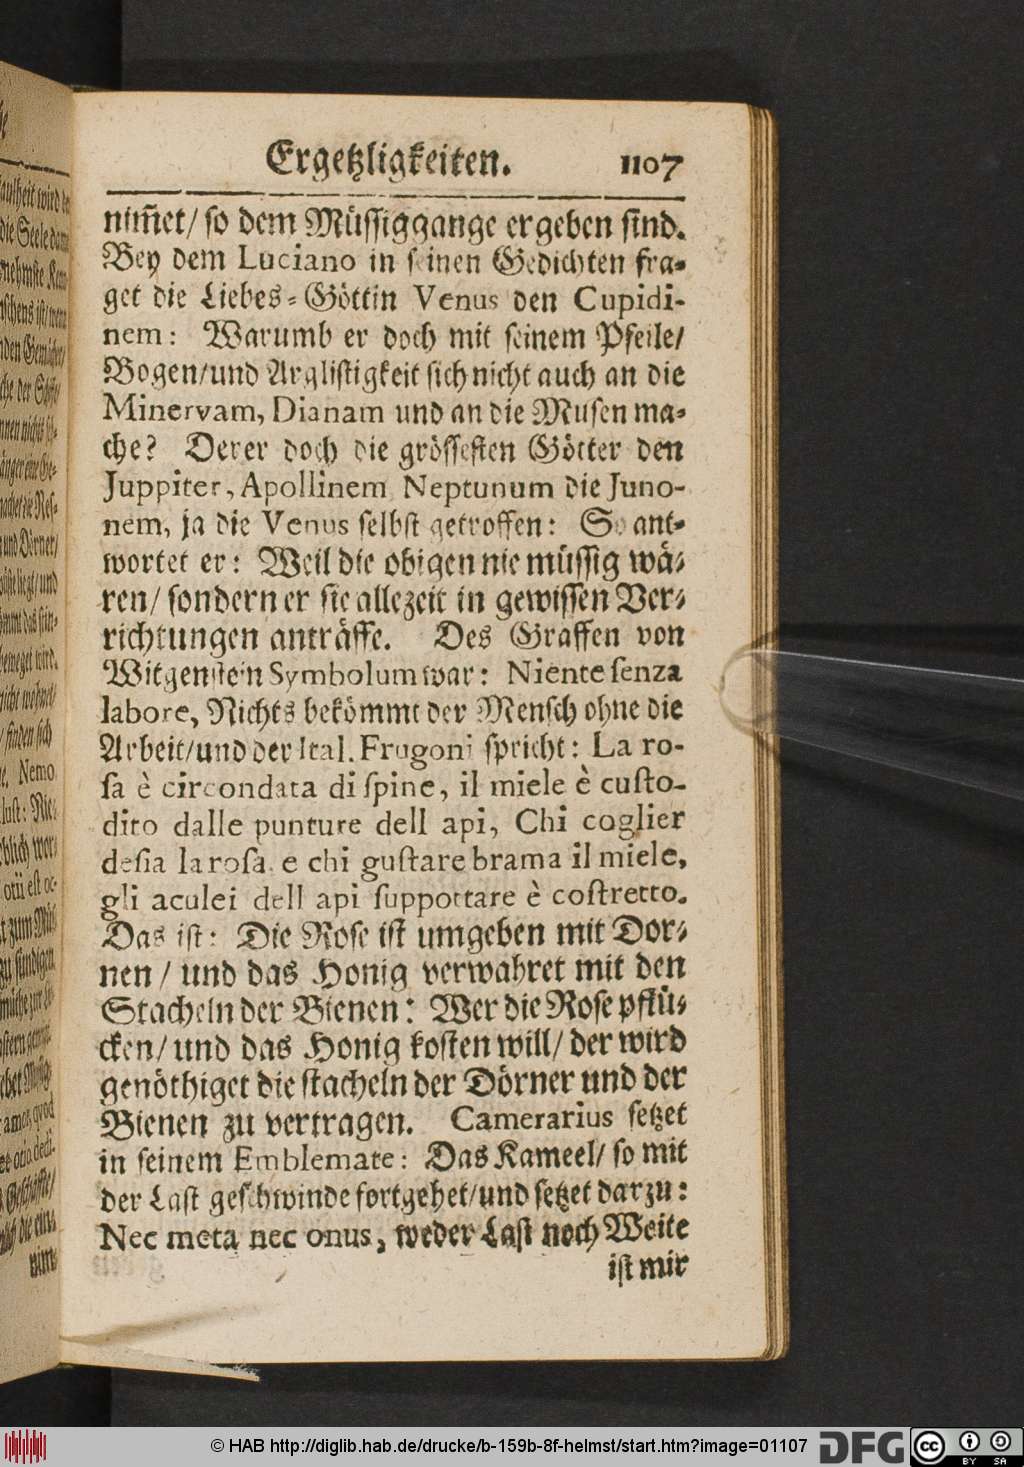 Ergetzligkeiten. 1107
nim̃et/ so dem Müssiggange ergeben sind.
Bey dem Luciano in seinen Gedichten fra-
get die Liebes-Göttin Venus den Cupidi-
nem: Warumb er doch mit seinem Pfeile/
Bogen/und Arglistigkeit sich nicht auch an die
Minervam, Dianam und an die Musen ma-
che? Derer doch die grössesten Götter den
Juppiter, Apollinem Neptunum die Juno-
nem, ja die Venus selbst getroffen: So ant-
wortet er: Weil die obigen nie müssig wä-
ren/ sondern er sie allezeit in gewissen Ver-
richtungen anträffe. Des Graffen von
Witgenstein Symbolum war: Niente senza
labore, Nichts bekömmt der Mensch ohne die
Arbeit/und der Ital. Frugoni spricht: La ro-
sa è circondata di spine, il miele è custo-
dito dalle punture dell api, Chi coglier
desia la rosa e chi gustare brama il miele,
gli aculei dell api supportare è costretto.
Das ist: Die Rose ist umgeben mit Dor-
nen / und das Honig verwahret mit den
Stacheln der Bienen: Wer die Rose pflü-
cken/ und das Honig kosten will/ der wird
genöthiget die stacheln der Dörner und der
Bienen zu vertragen. Camerarius setzet
in seinem Emblemate: Das Kameel/ so mit
der Last geschwinde fortgehet/und setzet darzu:
Nec meta nec onus, weder Last noch Weite
ist mir
© HAB http://diglib.hab.de/drucke/b-159b-8f-helmst/start.htm?image=01107
DFG
cc BY SA